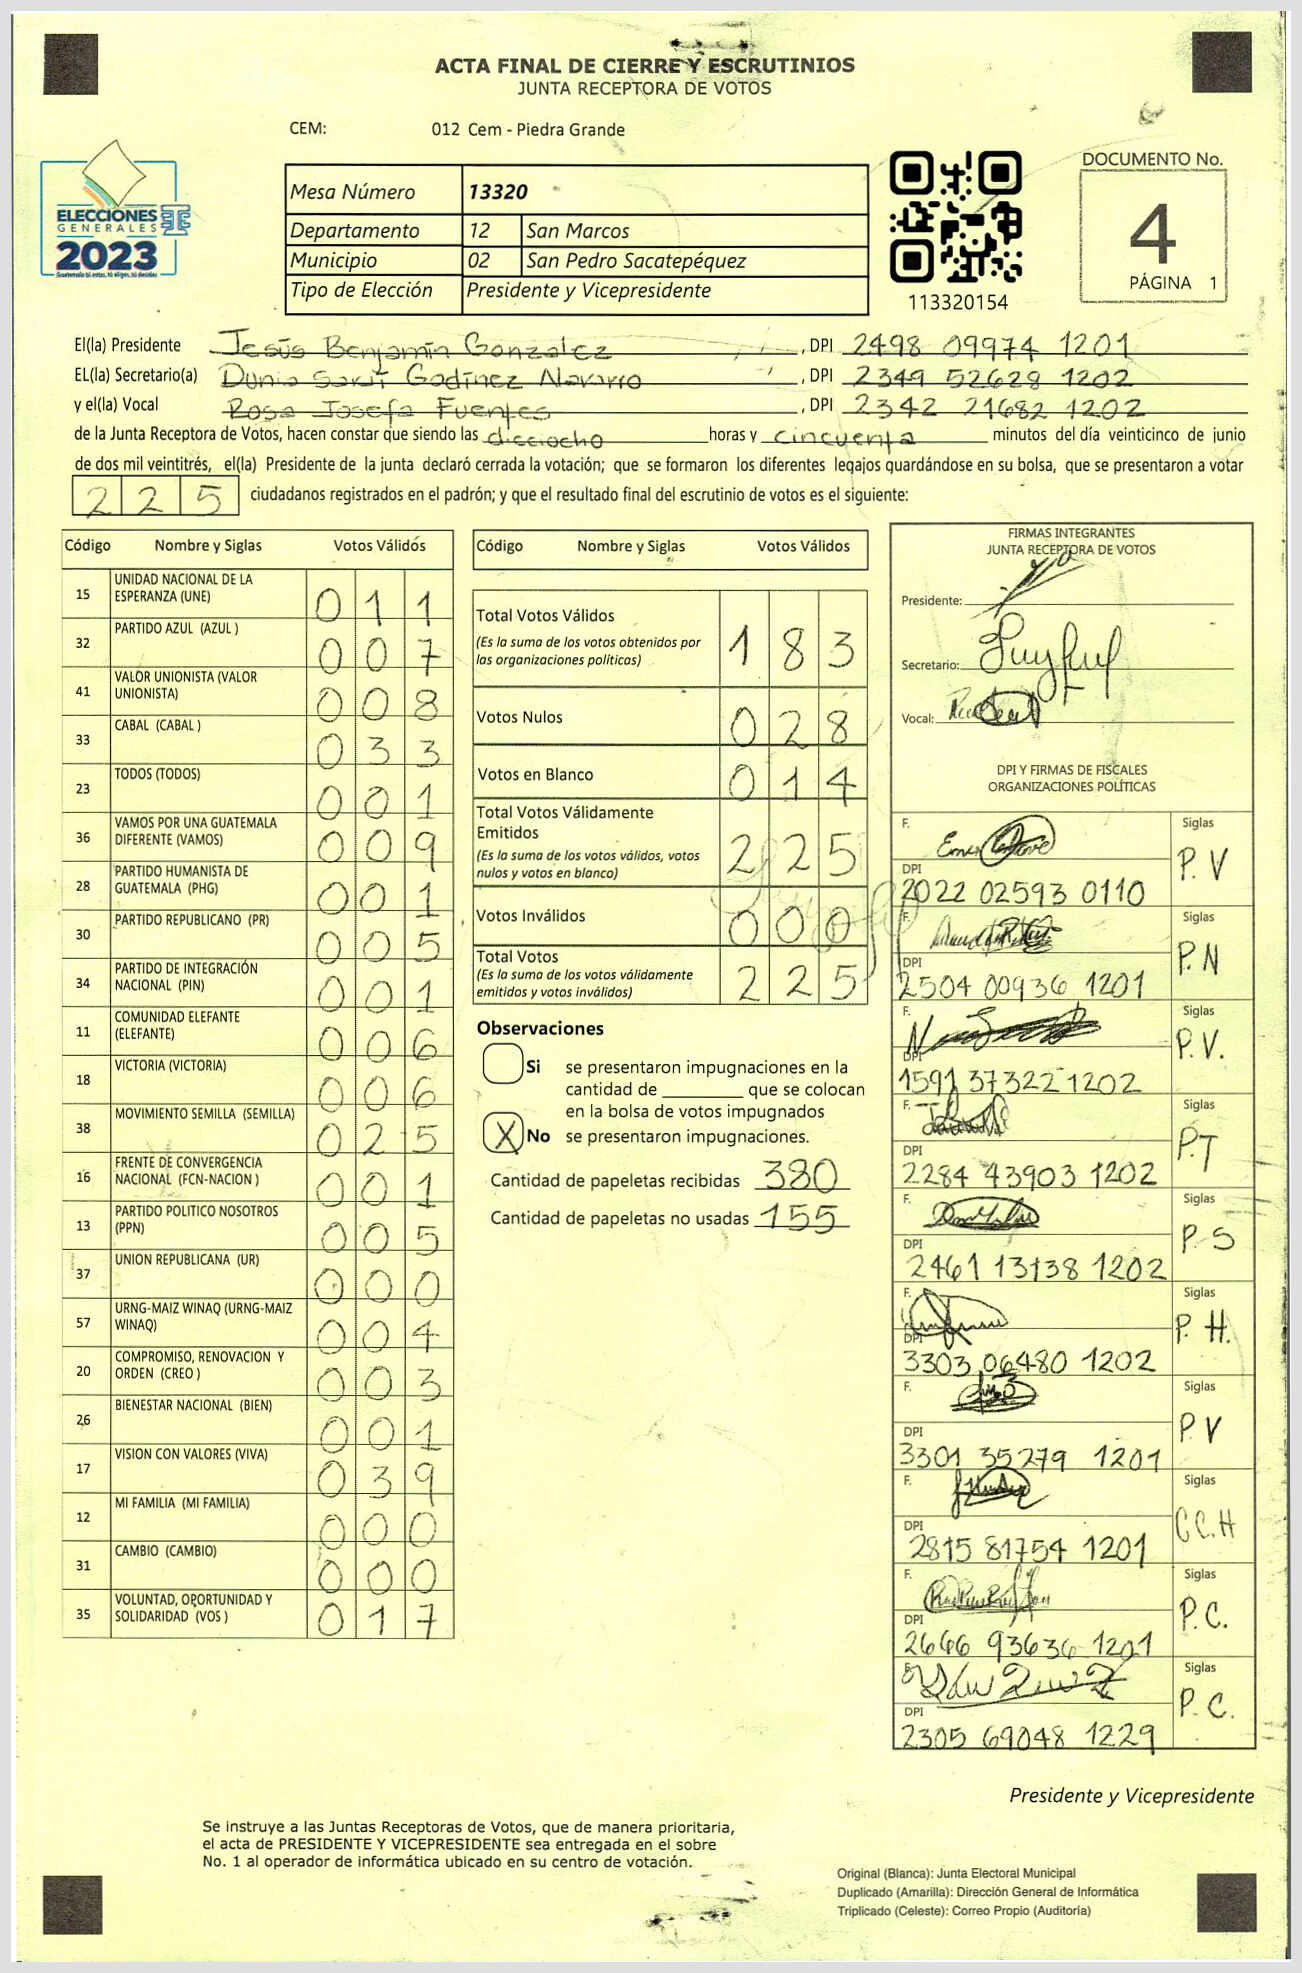 ACTA FINAL DE CIERRE Y ESCRUTINIOS
JUNTA RECEPTORA DE VOTOS
CEM: 012 Cem - Piedra Grande
ELECCIONES
GENERALES
2023
Mesa Número 13320
Departamento 12 San Marcos
Municipio 02 San Pedro Sacatepéquez
Tipo de Elección Presidente y Vicepresidente
113320154
DOCUMENTO No.
4
PÁGINA 1
El(la) Presidente Jesús Benjamín Gonzalez, DPI 2498 09974 1201
EL(la) Secretario(a) Dunia Sarai Godínez Navarro, DPI 2349 52628 1202
y el(la) Vocal Rosa Josefa Fuentes, DPI 2342 21682 1202
de la Junta Receptora de Votos, hacen constar que siendo las dieciocho horas y cincuenta minutos del día veinticinco de junio
de dos mil veintitrés, el(la) Presidente de la junta declaró cerrada la votación; que se formaron los diferentes legajos guardándose en su bolsa, que se presentaron a votar
225 ciudadanos registrados en el padrón; y que el resultado final del escrutinio de votos es el siguiente:
Código Nombre y Siglas Votos Válidos
15 UNIDAD NACIONAL DE LA ESPERANZA (UNE) 011
32 PARTIDO AZUL (AZUL ) 007
41 VALOR UNIONISTA (VALOR UNIONISTA) 008
33 CABAL (CABAL ) 033
23 TODOS (TODOS) 001
36 VAMOS POR UNA GUATEMALA DIFERENTE (VAMOS) 009
28 PARTIDO HUMANISTA DE GUATEMALA (PHG) 001
30 PARTIDO REPUBLICANO (PR) 005
34 PARTIDO DE INTEGRACIÓN NACIONAL (PIN) 001
11 COMUNIDAD ELEFANTE (ELEFANTE) 006
18 VICTORIA (VICTORIA) 006
38 MOVIMIENTO SEMILLA (SEMILLA) 025
16 FRENTE DE CONVERGENCIA NACIONAL (FCN-NACION ) 001
13 PARTIDO POLITICO NOSOTROS (PPN) 005
37 UNION REPUBLICANA (UR) 000
57 URNG-MAIZ WINAQ (URNG-MAIZ WINAQ) 004
20 COMPROMISO, RENOVACION Y ORDEN (CREO ) 003
26 BIENESTAR NACIONAL (BIEN) 001
17 VISION CON VALORES (VIVA) 039
12 MI FAMILIA (MI FAMILIA) 000
31 CAMBIO (CAMBIO) 000
35 VOLUNTAD, OPORTUNIDAD Y SOLIDARIDAD (VOS ) 017
Código Nombre y Siglas Votos Válidos
Total Votos Válidos 183
(Es la suma de los votos obtenidos por
las organizaciones políticas)
Votos Nulos 028
Votos en Blanco 014
Total Votos Válidamente
Emitidos 225
(Es la suma de los votos válidos, votos
nulos y votos en blanco)
Votos Inválidos 000
Total Votos 225
(Es la suma de los votos válidamente
emitidos y votos inválidos)
Observaciones
Si se presentaron impugnaciones en la
cantidad de ________ que se colocan
en la bolsa de votos impugnados
X No se presentaron impugnaciones.
Cantidad de papeletas recibidas 380
Cantidad de papeletas no usadas 155
FIRMAS INTEGRANTES
JUNTA RECEPTORA DE VOTOS
Presidente:
Secretario:
Vocal:
DPI Y FIRMAS DE FISCALES
ORGANIZACIONES POLÍTICAS
F. Siglas P.V
DPI 2022 02593 0110
F. Siglas P.N
DPI 2504 00936 1201
F. Siglas P.V.
DPI 1591 37322 1202
F. Siglas P.T
DPI 2284 43903 1202
F. Siglas P.S
DPI 2461 13138 1202
F. Siglas P.H.
DPI 3303 06480 1202
F. Siglas P.V
DPI 3301 35279 1201
F. Siglas C.C.H
DPI 2815 81754 1201
F. Siglas P.C.
DPI 2666 93636 1201
F. Siglas P.C.
DPI 2305 69048 1229
Presidente y Vicepresidente
Se instruye a las Juntas Receptoras de Votos, que de manera prioritaria,
el acta de PRESIDENTE Y VICEPRESIDENTE sea entregada en el sobre
No. 1 al operador de informática ubicado en su centro de votación.
Original (Blanca): Junta Electoral Municipal
Duplicado (Amarilla): Dirección General de Informática
Triplicado (Celeste): Correo Propio (Auditoría)